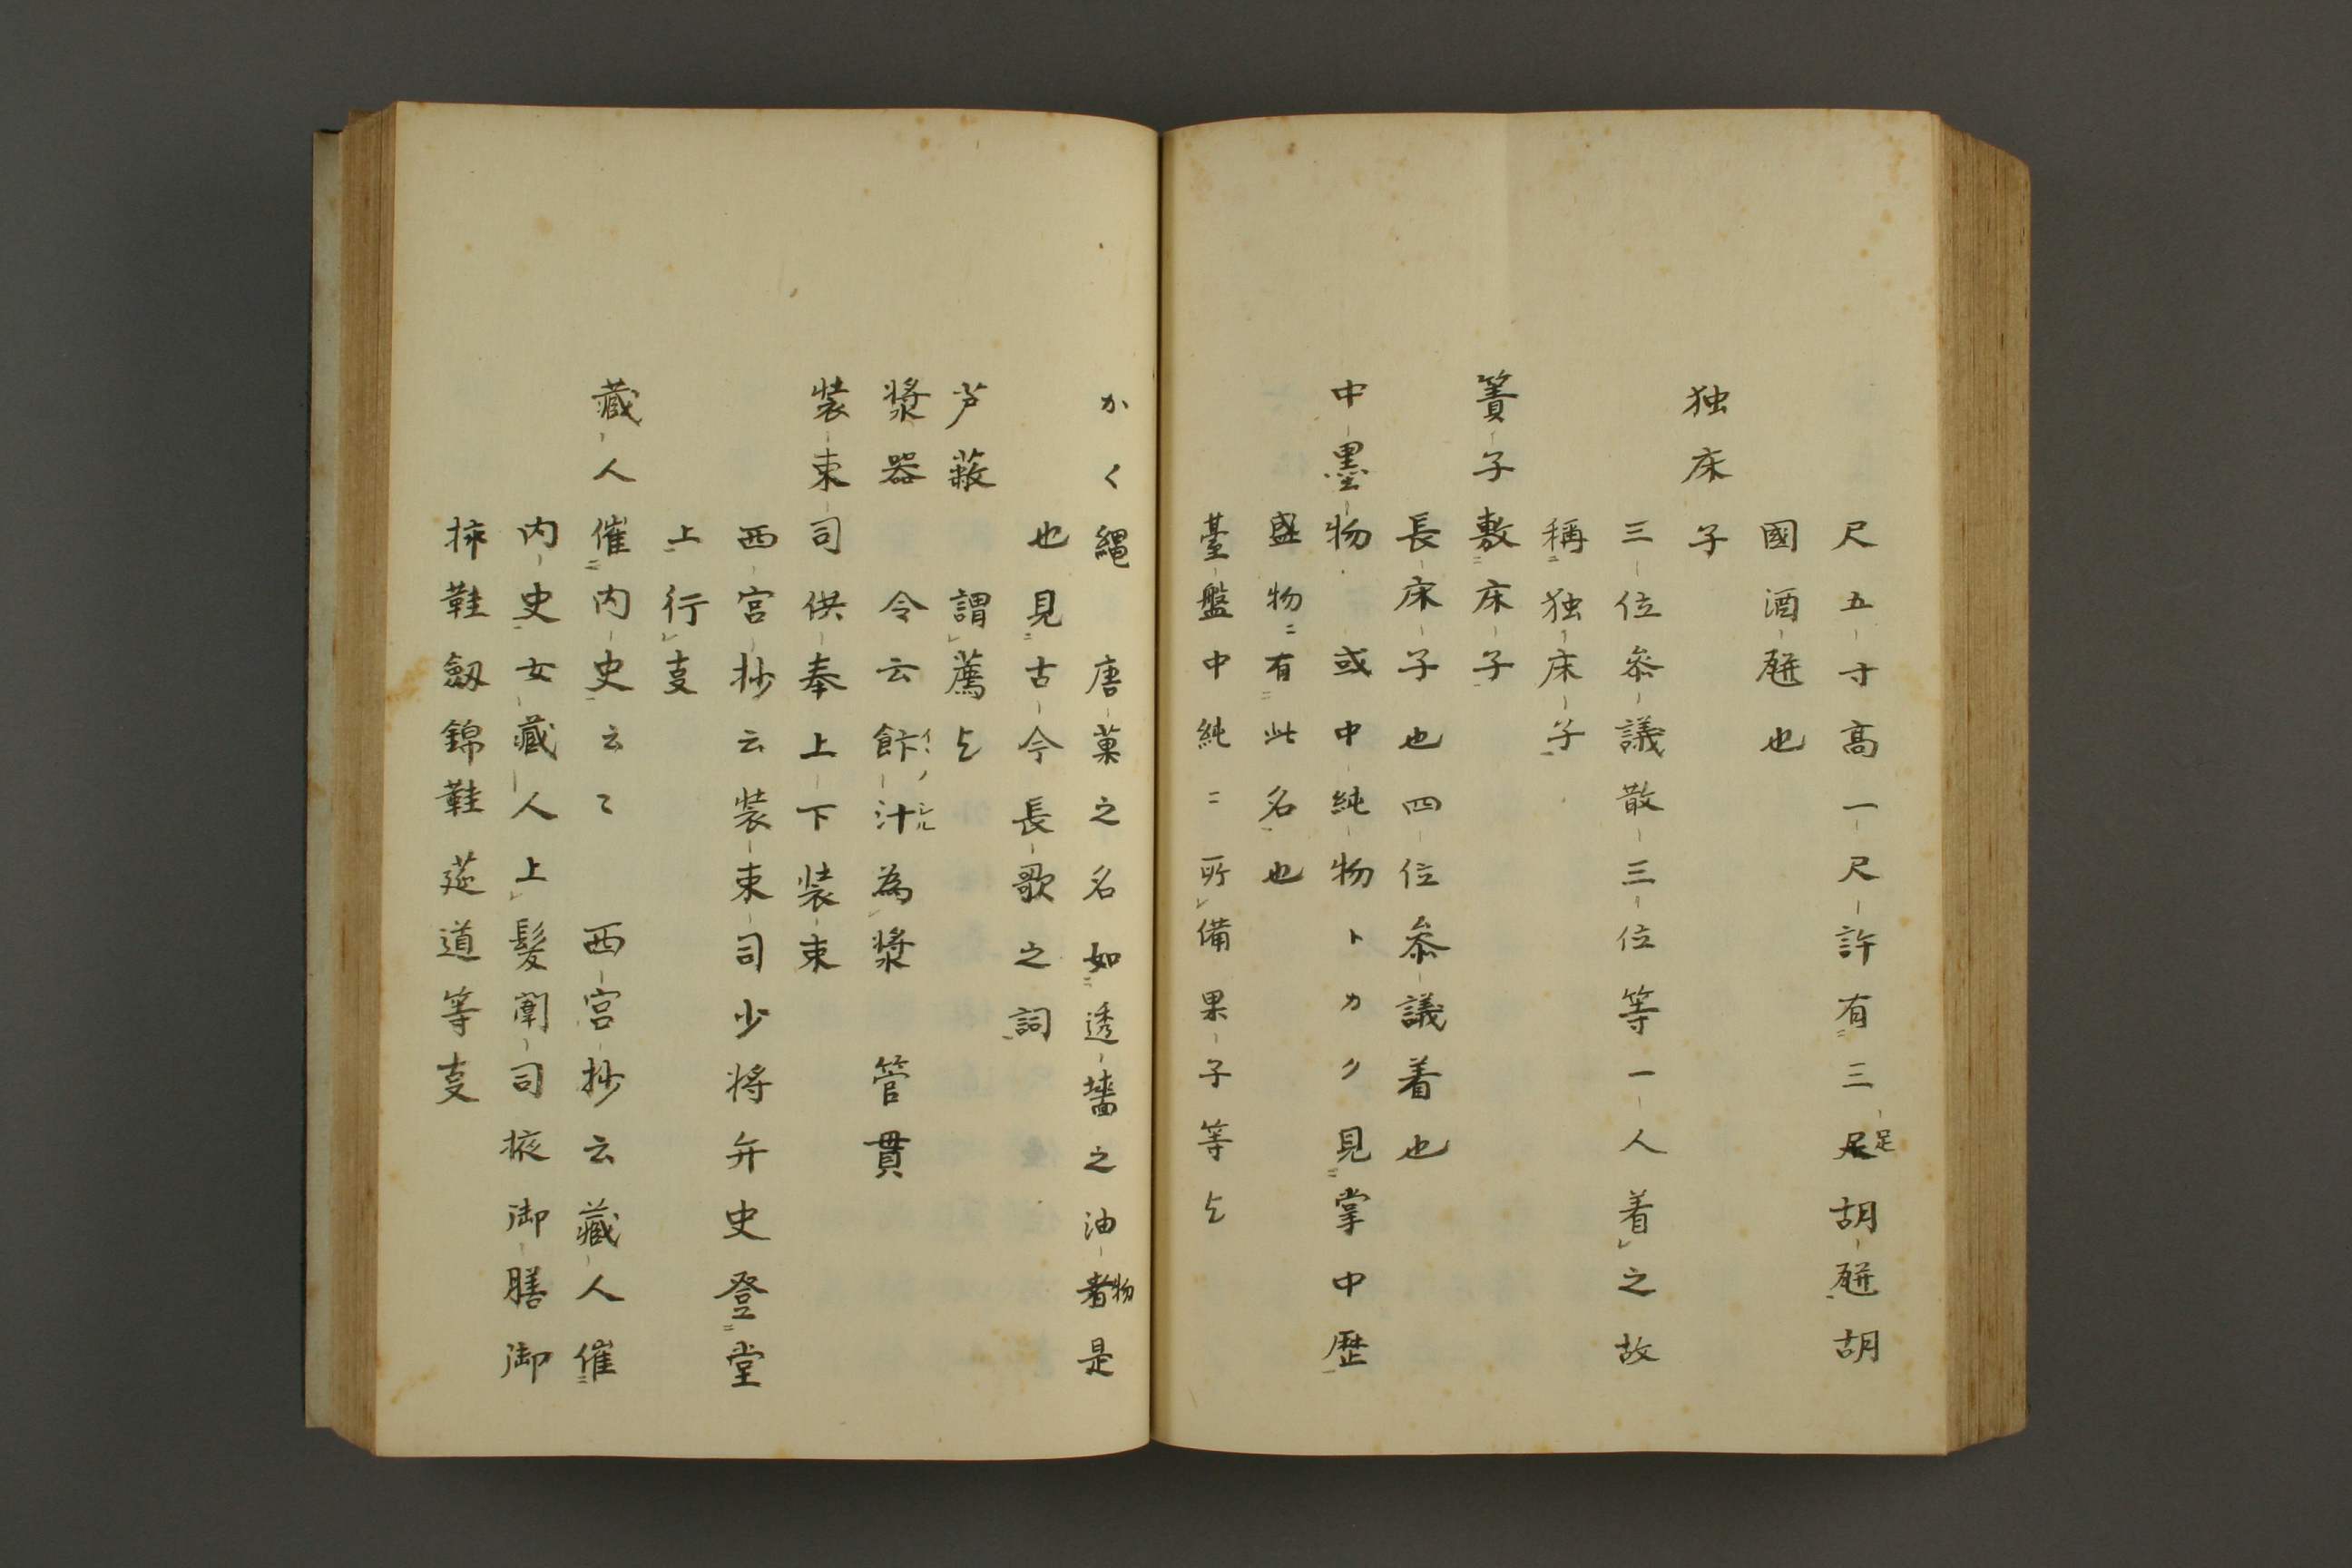 尺五寸高一尺許有三足胡瓶胡
國酒瓶也
独床子
三位参議散三位等一人着之故
稱独床子
簀子敷床子
長床子也四位参議着也
中墨物或中純物トカク見掌中歴
盛物有此名也
臺盤中純ニ所備果子等と
かく縄　唐菓之名如透墻之油物是
也見古今長歌之詞
芦蔽　謂薦と
漿器　令云飰汁為漿　管貫
装束司供奉上下装束
西宮抄云装束司少将弁史登堂
上行㕝
蔵人催内史云々　西宮抄云蔵人催
内史女蔵人上髪闈司掖御膳御
挿鞋劔錦鞋莚道等㕝